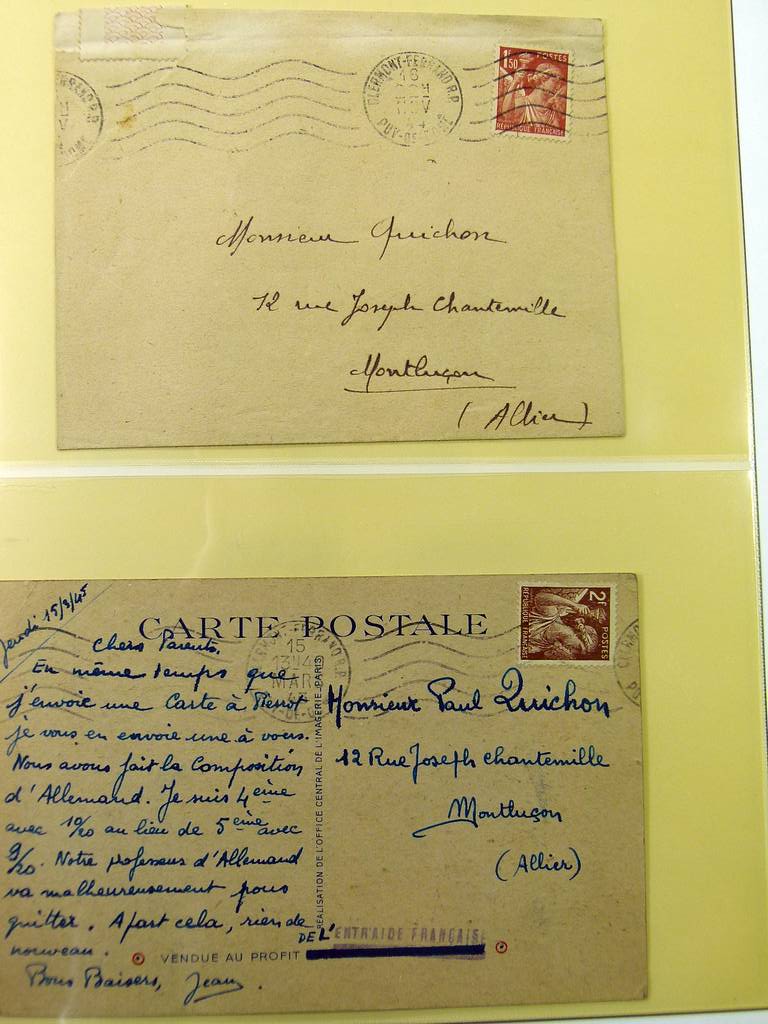 CLERMONT-FERRAND R.P.
16
PUY-DE-DOME
1F50
POSTES
REPUBLIQUE FRANÇAISE
Monsieur Quichon
12 rue Joseph Chantemille
Montluçon
(Allier)
Jeudi 15/3/45
CARTE POSTALE
2F
POSTES
REPUBLIQUE FRANÇAISE
15
13H40
MARS
Chers Parents.
En même temps que
j'envoie une Carte à Pierrot
je vous en envoie une à vous.
Nous avons fait la Composition
d'Allemand. Je suis 4ème
avec 10/20 au lieu de 5ème avec
9/20. Notre professeur d'Allemand
va malheureusement nous
quitter. Apart cela, rien de
nouveau.
Bons Baisers, Jean.
RÉALISATION DE L'OFFICE CENTRAL DE L'IMAGERIE-PARIS
Monsieur Paul Quichon
12 Rue Joseph Chantemille
Montluçon
(Allier)
VENDUE AU PROFIT DE L'ENTRAIDE FRANÇAISE